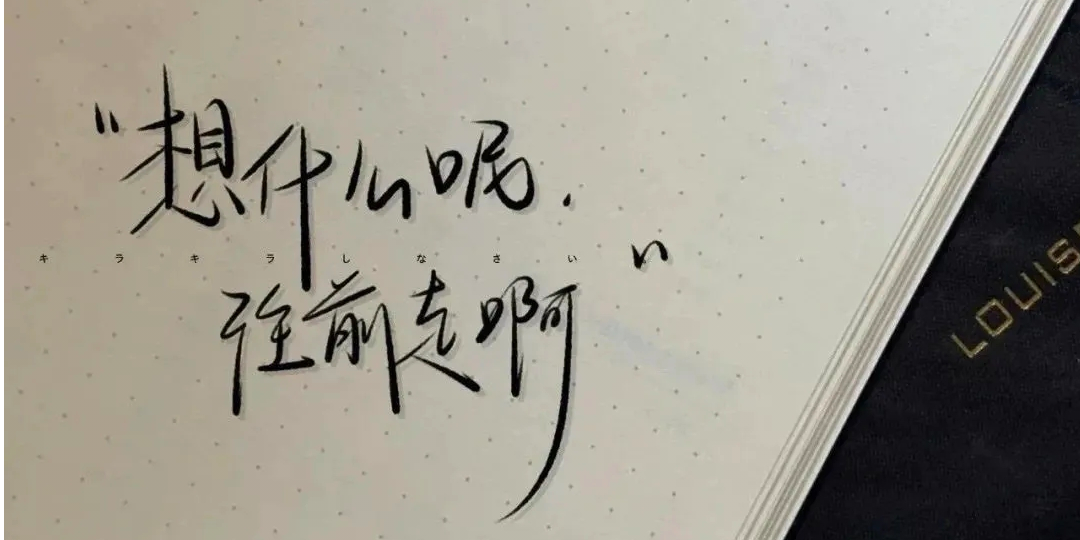 “想什么呢.
キラキラしなさい
”
往前走啊
LOUIS